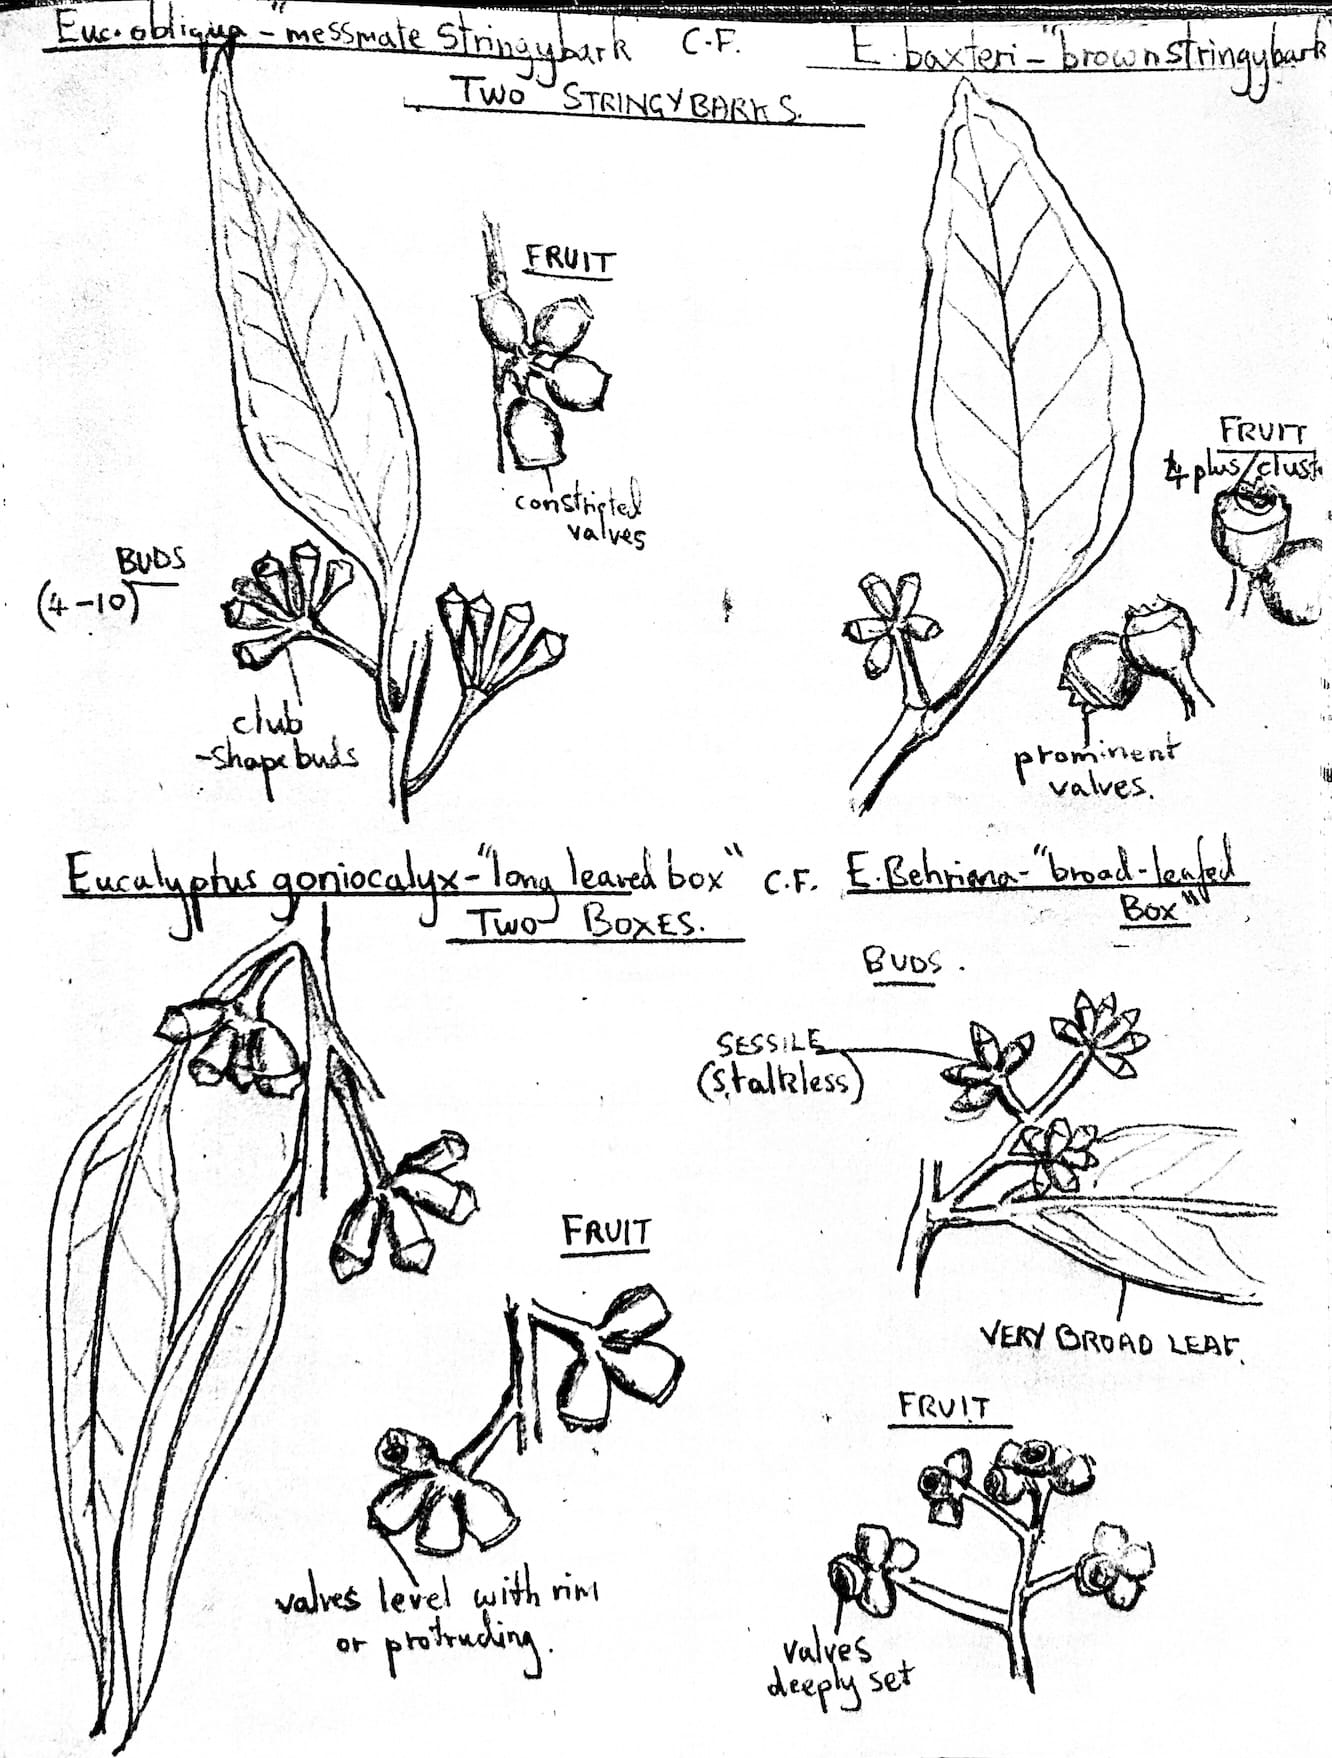 Euc. obliqua - "messmate Stringybark C.F. E. baxteri - "brown stringybark
TWO STRINGYBARKS.
FRUIT
constricted
valves
BUDS
(4-10)
club
-shape buds
FRUIT
4 plus/clust
prominent
valves.
Eucalyptus goniocalyx - "long leaved box" C.F. E. Behriana - "broad-leafed
Box"
TWO BOXES.
BUDS.
SESSILE
(stalkless)
VERY BROAD LEAF.
FRUIT
valves level with rim
or protruding.
FRUIT
valves
deeply set